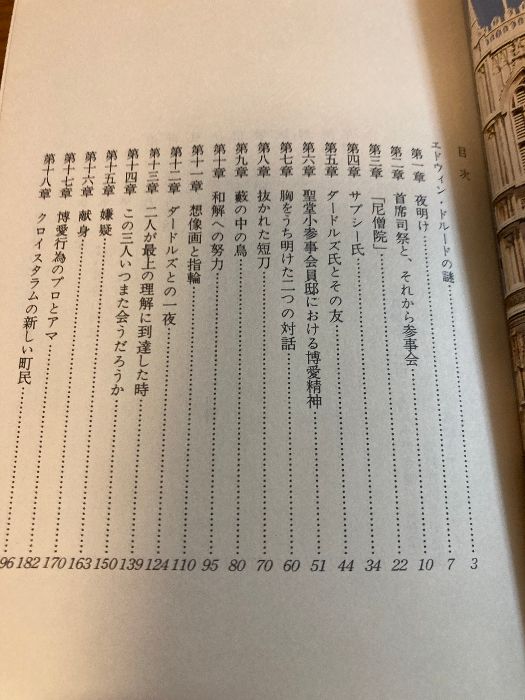 目次
エドウィン・ドルードの謎……3
第一章 夜明け……7
第二章 首席司祭と、それから参事会……10
第三章 「尼僧院」……22
第四章 サプシー氏……34
第五章 ダードルズ氏とその友……44
第六章 聖堂小参事会員邸における博愛精神……51
第七章 胸をうち明けた二つの対話……60
第八章 抜かれた短刀……70
第九章 藪の中の鳥……80
第十章 和解への努力……95
第十一章 想像画と指輪……110
第十二章 ダードルズとの一夜……124
第十三章 二人が最上の理解に到達した時……139
第十四章 この三人いつまた会うだろうか……150
第十五章 嫌疑……163
第十六章 献身……170
第十七章 博愛行為のプロとアマ……182
第十八章 クロイスタラムの新しい町民……96